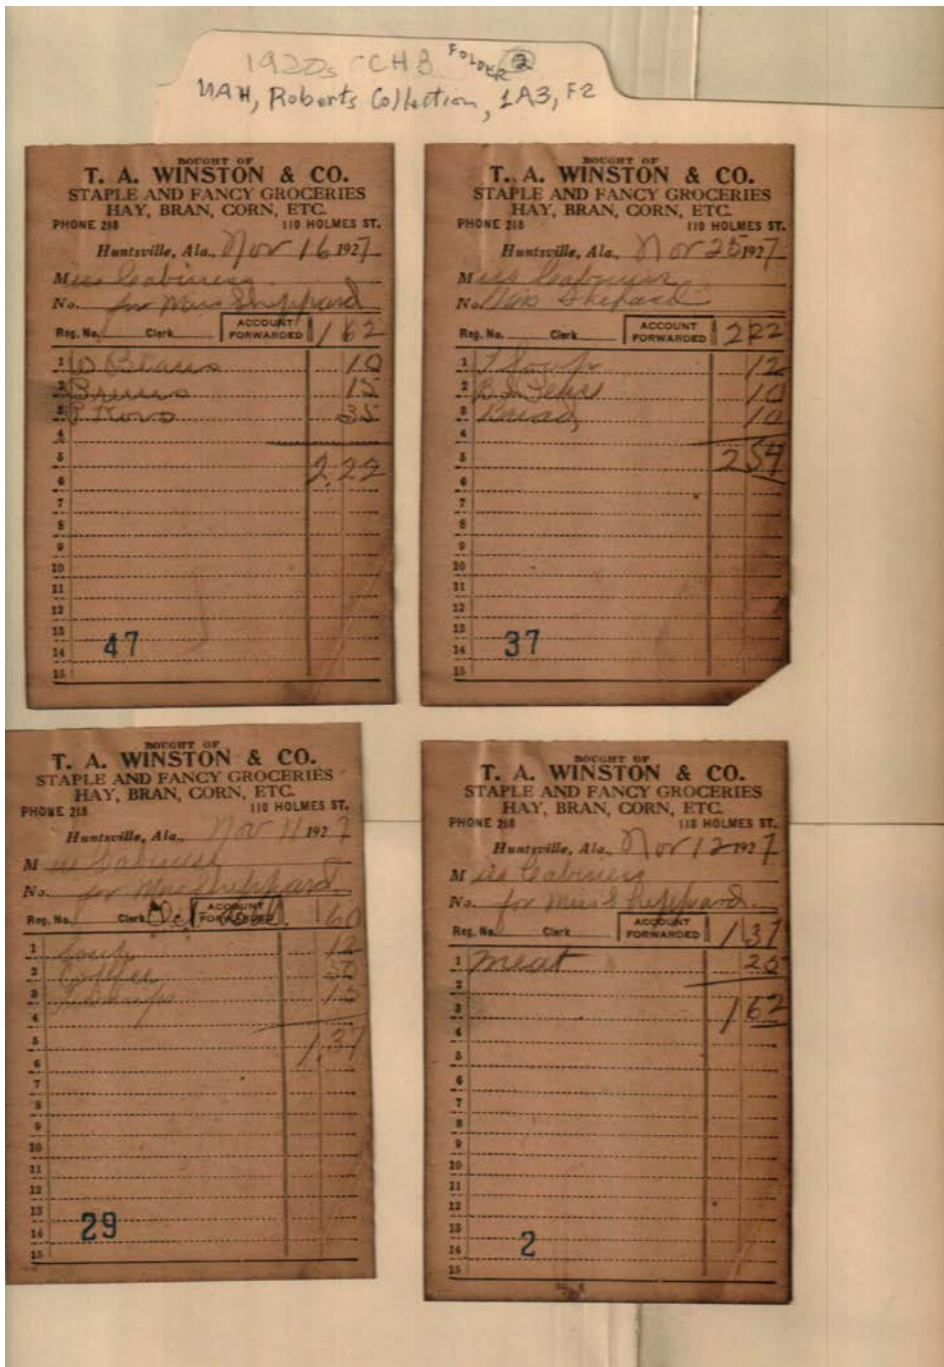 1920s CHB FOLDER 2
UAH, Roberts Collection, 1A3, F2
BOUGHT OF
T. A. WINSTON & CO.
STAPLE AND FANCY GROCERIES
HAY, BRAN, CORN, ETC.
PHONE 218 110 HOLMES ST.
Huntsville, Ala., Nov 16 1927
Miss Cabiness
No. for Miss Sheppard
Reg. No. Clerk ACCOUNT FORWARDED 1 62
1 Beans 10
2 15
3 35
4
5
6 2.22
7
8
9
10
11
12
13
14 47
15
BOUGHT OF
T. A. WINSTON & CO.
STAPLE AND FANCY GROCERIES
HAY, BRAN, CORN, ETC.
PHONE 218 110 HOLMES ST.
Huntsville, Ala., Nov 25 1927
Miss Cabiness
No. Miss Shepard
Reg. No. Clerk ACCOUNT FORWARDED 2 22
1 Soup 12
2 10
3 Bread 10
4
5 2 54
6
7
8
9
10
11
12
13
14 37
15
BOUGHT OF
T. A. WINSTON & CO.
STAPLE AND FANCY GROCERIES
HAY, BRAN, CORN, ETC.
PHONE 218 110 HOLMES ST.
Huntsville, Ala., Nov 11 1927
Miss Cabiness
No. for Miss Sheppard
Reg. No. Clerk ACCOUNT FORWARDED 60
1 Soup 12
2 Coffee 50
3 15
4
5
6 1.37
7
8
9
10
11
12
13
14 29
15
BOUGHT OF
T. A. WINSTON & CO.
STAPLE AND FANCY GROCERIES
HAY, BRAN, CORN, ETC.
PHONE 218 110 HOLMES ST.
Huntsville, Ala., Nov 12 1927
Miss Cabiness
No. for Miss Sheppard
Reg. No. Clerk ACCOUNT FORWARDED 1 37
1 meat 25
2
3 1 62
4
5
6
7
8
9
10
11
12
13
14 2
15